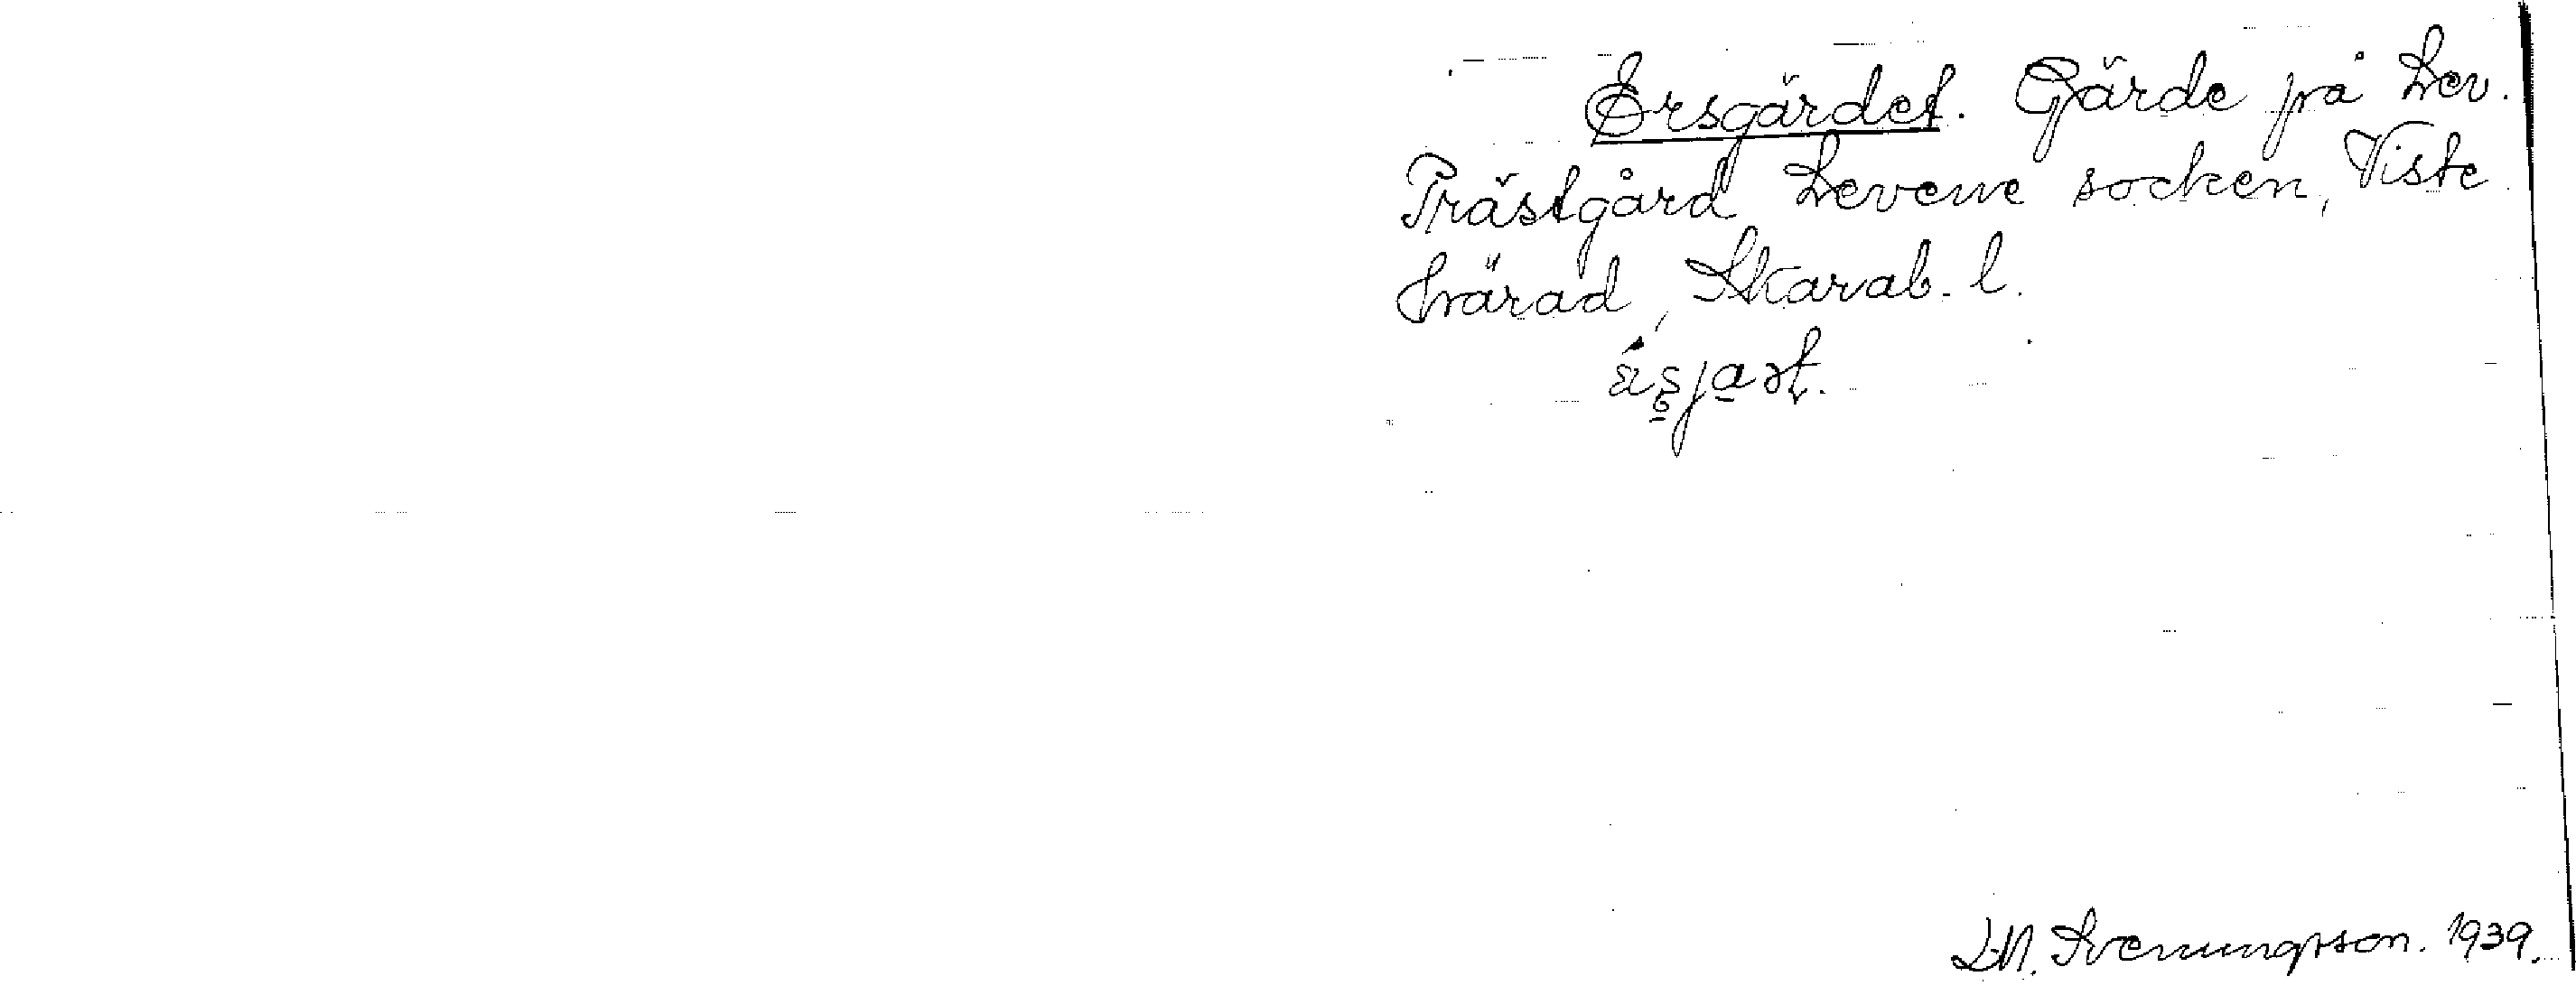 Ersgärdet. Gärde på Lev.
Prästgård Levene socken, Viste
härad, Skarab. l.
L.M. Svenungsson. 1939.